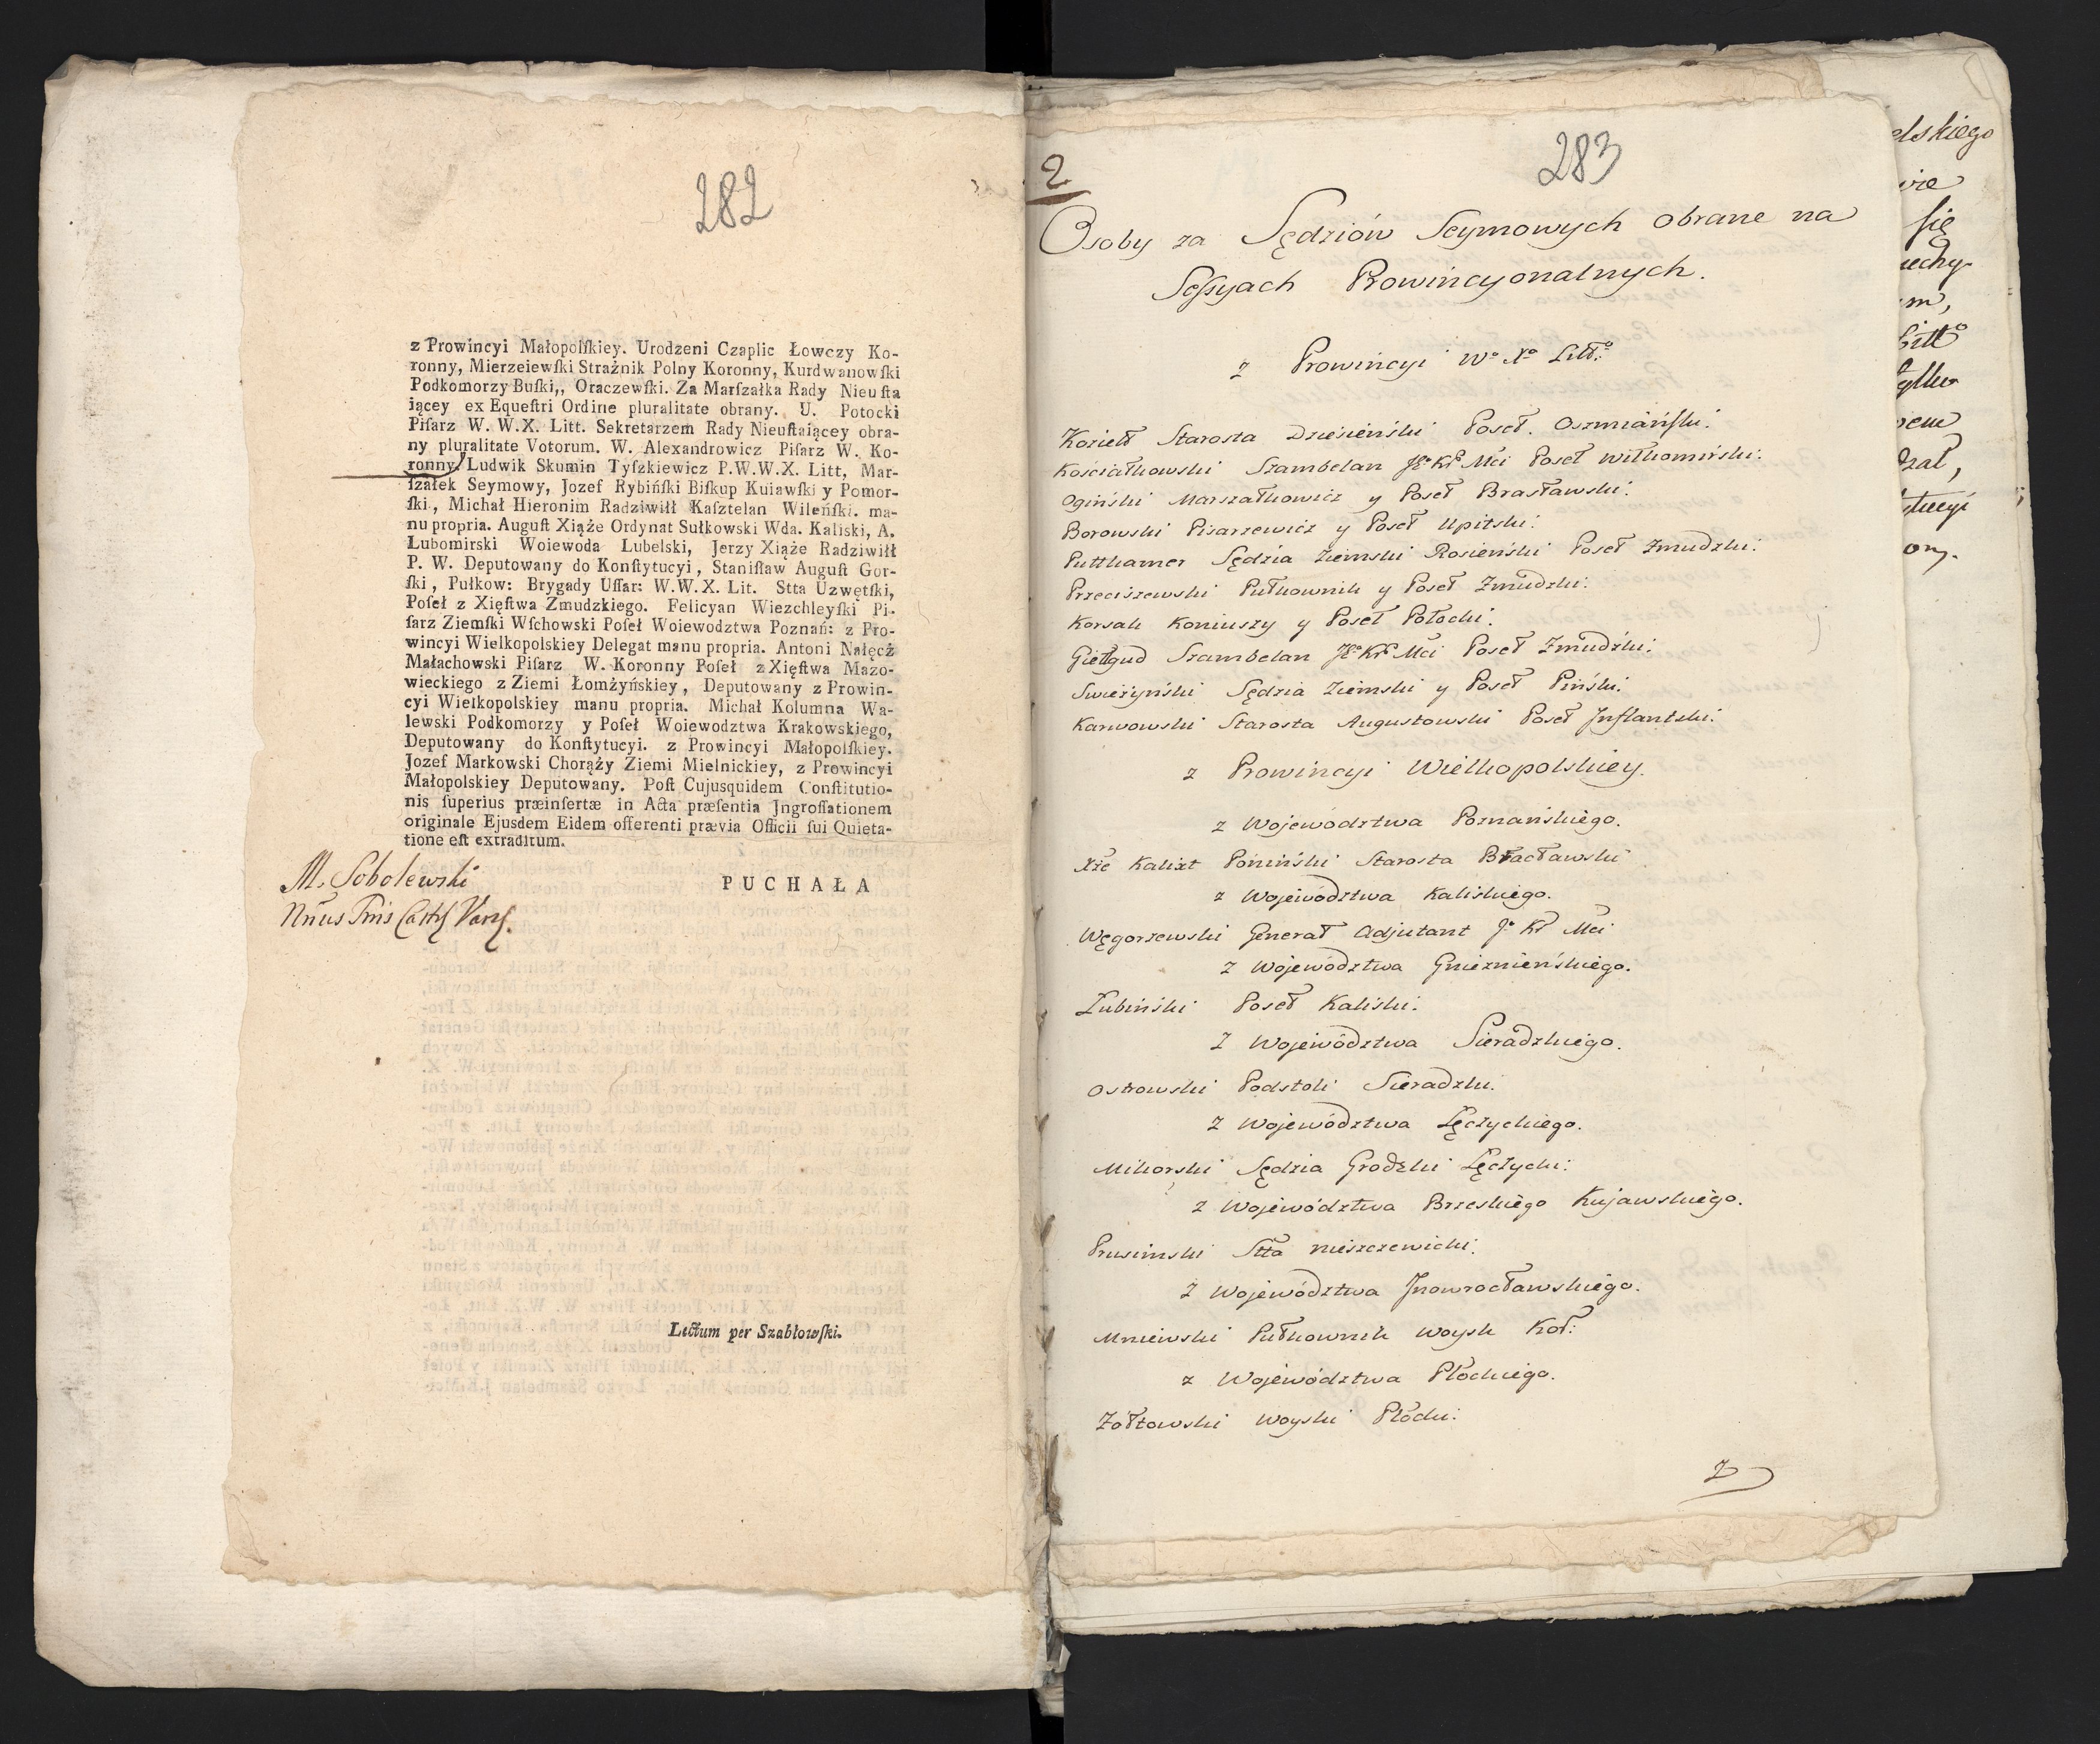 282
z Prowincyi Małopolſkiey. Urodzeni Czaplic Łowczy Ko-
ronny, Mierzeiewſki Strażnik Polny Koronny, Kurdwanowſki
Podkomorzy Buſki,, Oraczewſki. Za Marſzałka Rady Nieuſta
iącey ex Equeſtri Ordine pluralitate obrany. U. Potocki
Piſarz W. W.X. Litt. Sekretarzem Rady Nieuſtaiącey obra-
ny pluralitate Votorum. W. Alexandrowicz Piſarz W. Ko-
ronny. Ludwik Skumin Tyſzkiewicz P.W.W.X. Litt, Mar-
ſzałek Seymowy, Jozef Rybińſki Biſkup Kuiawſki y Pomor-
ſki, Michał Hieronim Radziwiłł Kaſztelan Wileńſki. ma-
nu propria. Auguſt Xiąże Ordynat Sułkowski Wda. Kaliski, A.
Lubomirski Woiewoda Lubelski, Jerzy Xiąże Radziwiłł
P. W. Deputowany do Konſtytucyi, Staniſław Auguſt Gor-
ſki, Pułkow: Brygady Uſſar: W.W.X. Lit. Stta Uzwętſki,
Poſeł z Xięſtwa Zmudzkiego. Felicyan Wiezchleyſki Pi-
ſarz Ziemſki Wſchowski Poſeł Woiewodztwa Poznań: z Pro-
wincyi Wielkopolskiey Delegat manu propria. Antoni Nałęcż
Małachowski Piſarz W. Koronny Poſeł z Xięſtwa Mazo-
wieckiego z Ziemi Łomżyńskiey, Deputowany z Prowin-
cyi Wielkopolskiey manu propria. Michał Kolumna Wa-
lewski Podkomorzy y Poſeł Woiewodztwa Krakowskiego,
Deputowany do Konſtytucyi. z Prowincyi Małopolſkiey.
Jozef Markowski Chorąży Ziemi Mielnickiey, z Prowincyi
Małopolskiey Deputowany. Poſt Cujusquidem Conſtitutio-
nis ſuperius præinſertæ in Acta præſentia Jngroſſationem
originale Ejusdem Eidem offerenti prævia Officii ſui Quieta-
tione eſt extraditum.
M. Sobolewski
PUCHAŁA
Lectum per Szabłowſki.
2
283
Osoby za Sędziów Seymowych obrane na
Seſsyach Prowincyonalnych.
z Prowincyi Wo Xo Litto:
Koziełł Starosta Dzisieński Poseł. Oszmiańſki:
Kościałkowski Szambelan Jo Kr Mci Poseł Wiłkomirski:
Ogiński Marszałkowicz y Poseł Brasławski:
Borowski Pisarzewicz y Poseł Upitski:
Puttkamer Sędzia Ziemski Rosieński Poseł Zmudzki:
Przeciszewski Pułkownik y Poseł Zmudzki:
Korsak Koniuszy y Poseł Połocki:
Giełgud Szambelan Jo Kr Mci Poseł Zmudzki:
Swieżyński Sędzia Ziemski y Poseł Piński:
Karwowski Starosta Augustowski Poseł Jnflantski:
z Prowincyi Wielkopolskiey.
z Województwa Poznańskiego.
Xże Kalixt Poniński Starosta Bracławski
z Województwa Kaliskiego.
Węgorzewski Generał Adjutant Jo Kr Mci
z Województwa Gnieznieńskiego.
Łubiński Poseł Kaliski:
z Województwa Sieradzkiego.
Ostrowski Podstoli Sieradzki:
z Województwa Łęczyckiego.
Mikorski Sędzia Grodzki Łęczycki:
z Województwa Brzeskiego Kujawskiego.
Prusimski Stta nieszczewicki:
z Województwa Jnowrocławskiego.
Mniewski Pułkownik Woysk Kor:
z Województwa Płockiego.
Zółtowski Woyski Płocki:
Z
elskiego
się
m,